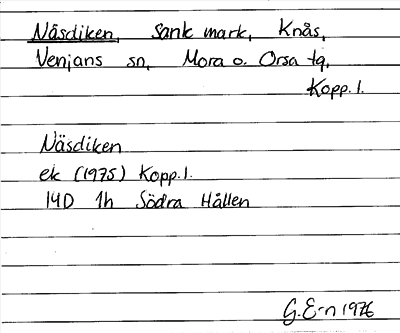 Näsdiken, sank mark, Knås,
Venjans sn, Mora o. Orsa tg,
Kopp. l.
Näsdiken
ek (1975) Kopp. l.
14D 1h Södra Hållen
G.E-n 1976